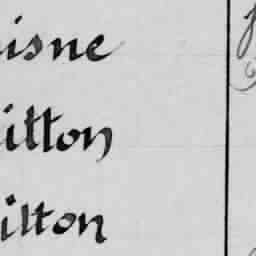 isne
ilton
ilton